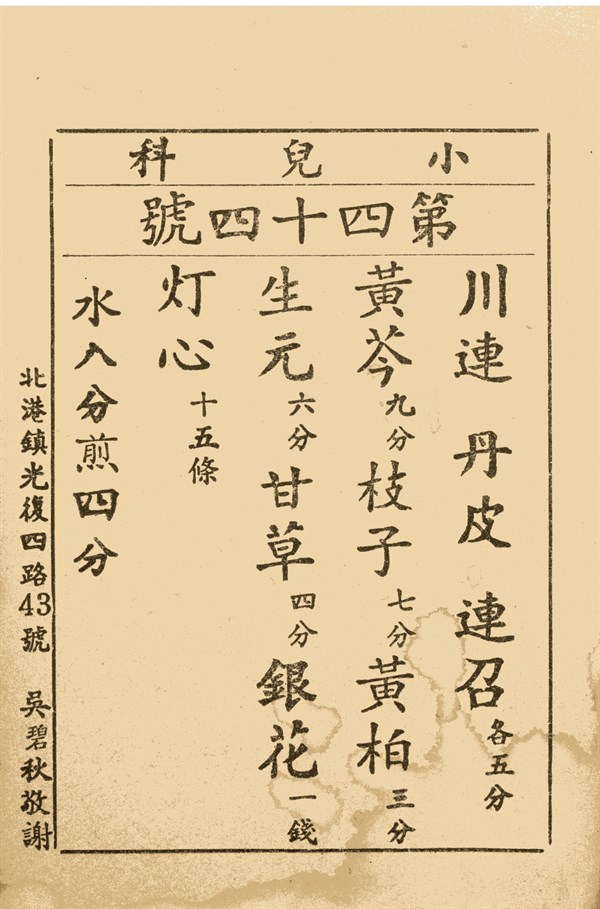 小兒科
第四十四號
川連 丹皮 連召各五分
黃芩九分 枝子七分 黃柏三分
生元六分 甘草四分 銀花一錢
灯心十五條
水八分煎四分
北港鎮光復四路43號 吳碧秋敬謝